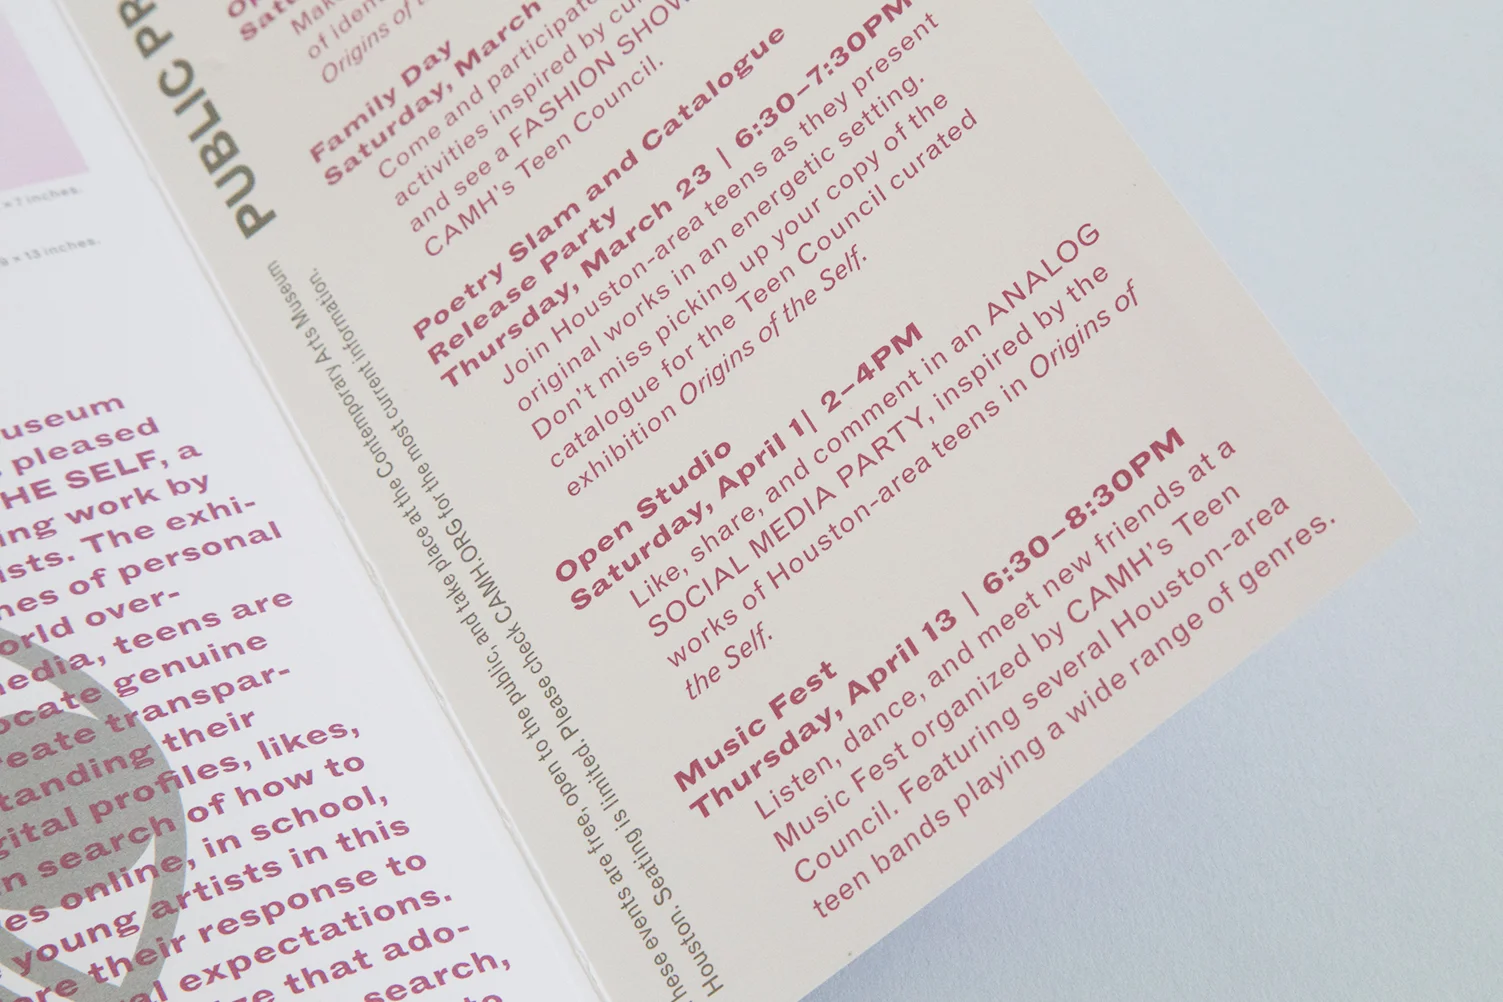 × 7 inches.
9 × 13 inches.
useum
pleased
THE SELF, a
ing work by
ists. The exhi-
nes of personal
orld over-
media, teens are
ocate genuine
reate transpar-
standing their
gital profiles, likes,
in search of how to
es online, in school,
young artists in this
ore their response to
expectations.
that ado-
search,
to
PUBLIC PR
These events are free, open to the public, and take place at the Contemporary Arts Museum
Houston. Seating is limited. Please check CAMH.ORG for the most current information.
Make
of iden
Origins of
Family Day
Saturday, March
Come and participate
activities inspired by
and see a FASHION SHOW
CAMH's Teen Council.
Poetry Slam and Catalogue
Release Party
Thursday, March 23 | 6:30–7:30PM
Join Houston-area teens as they present
original works in an energetic setting.
Don't miss picking up your copy of the
catalogue for the Teen Council curated
exhibition Origins of the Self.
Open Studio
Saturday, April 1| 2–4PM
Like, share, and comment in an ANALOG
SOCIAL MEDIA PARTY, inspired by the
works of Houston-area teens in Origins of
the Self.
Music Fest
Thursday, April 13 | 6:30–8:30PM
Listen, dance, and meet new friends at a
Music Fest organized by CAMH's Teen
Council. Featuring several Houston-area
teen bands playing a wide range of genres.